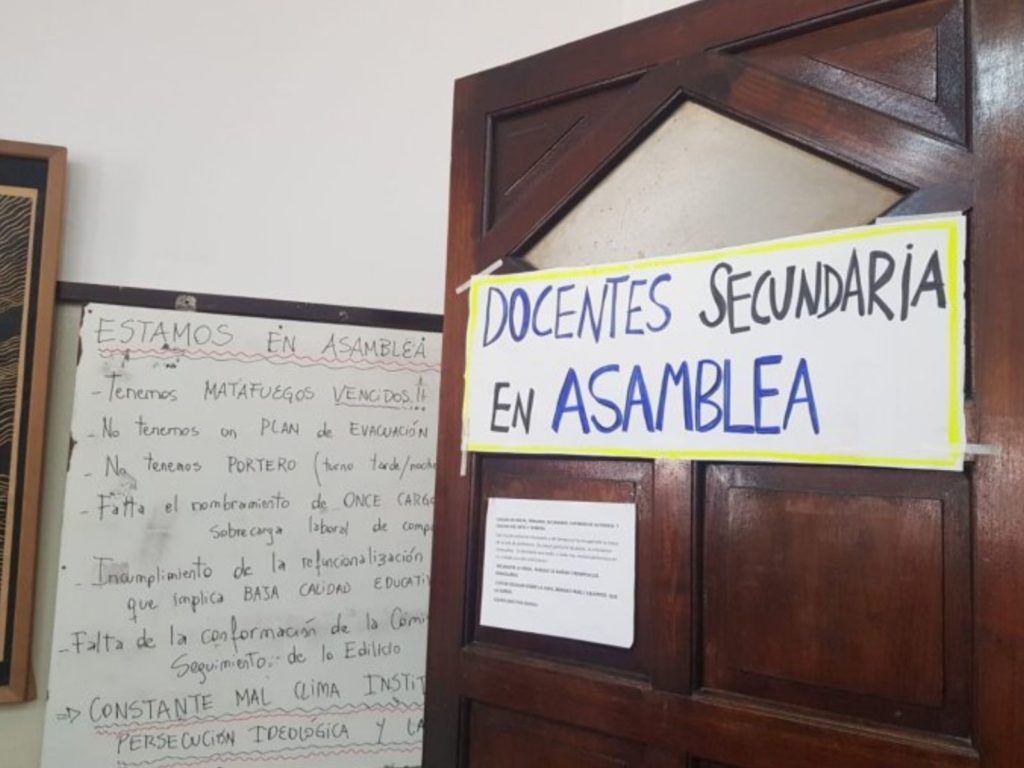 ESTAMOS EN ASAMBLEA
- Tenemos MATAFUEGOS VENCIDOS!!
- No tenemos un PLAN de EVACUACIÓN
- No tenemos PORTERO (turno tarde/noche
- Falta el nombramiento de ONCE CARGO
sobrecarga laboral de comp
- Incumplimiento de la refuncionalización
que implica BAJA CALIDAD EDUCATI
- Falta de la conformación de la Comi
Seguimiento de lo Edilicio
=> CONSTANTE MAL CLIMA INSTIT
PERSECUCIÓN IDEOLÓGICA Y LA
DOCENTES SECUNDARIA
EN ASAMBLEA